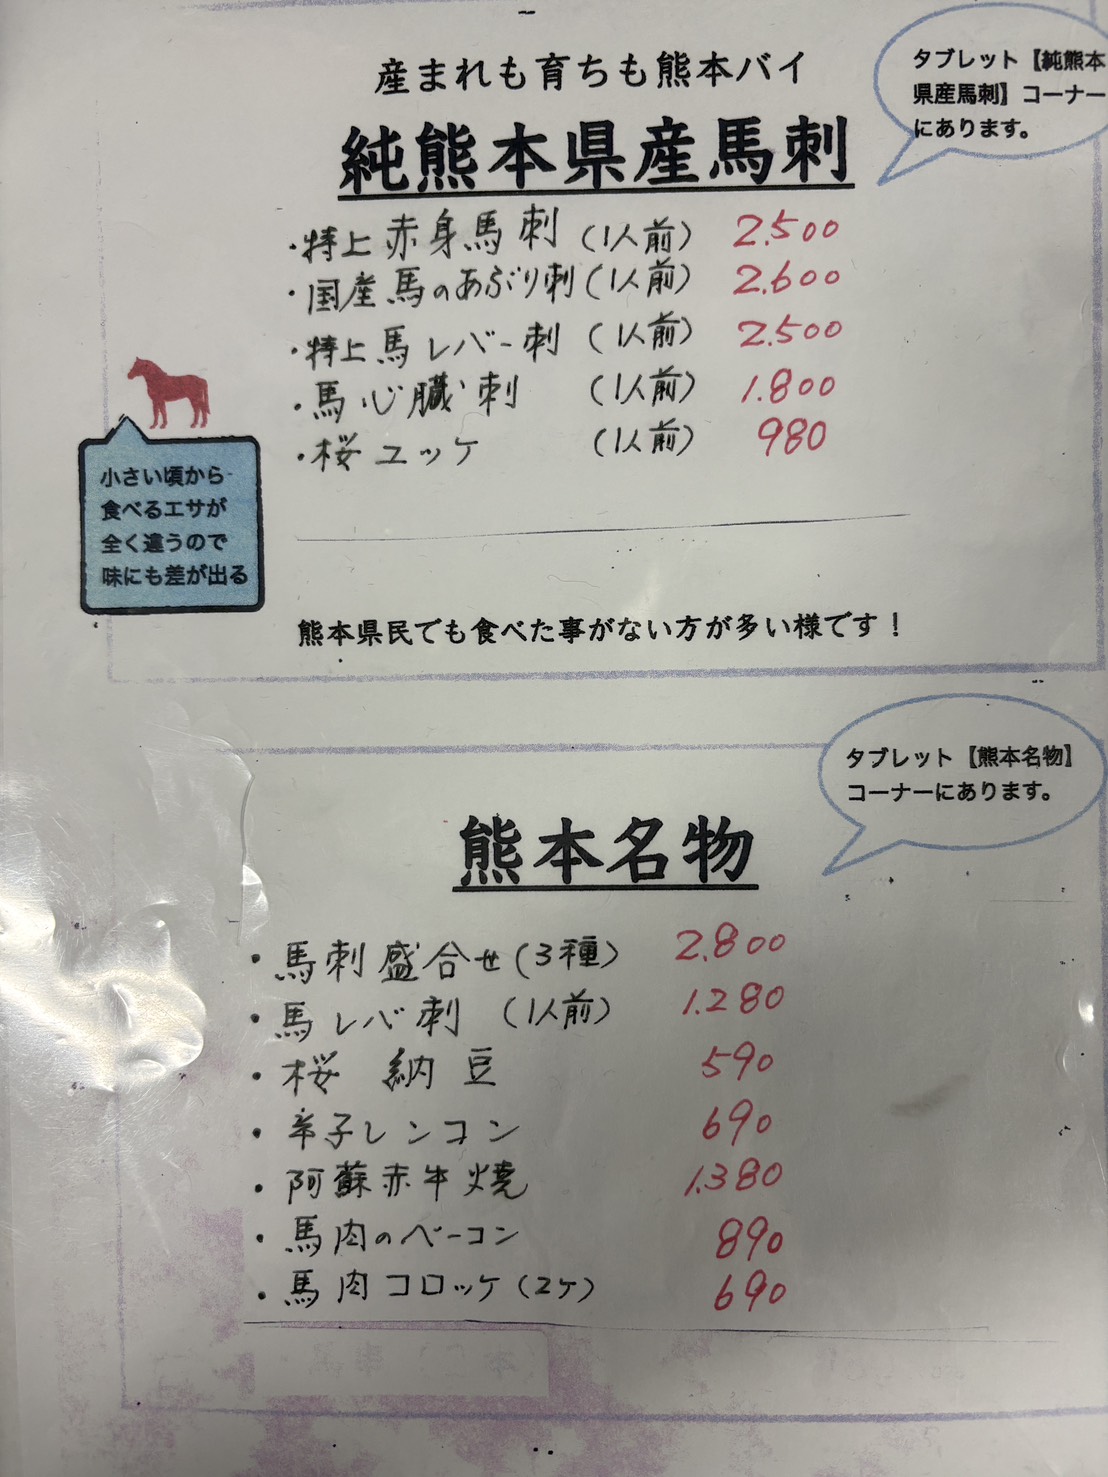 産まれも育ちも熊本バイ
タブレット【純熊本
県産馬刺】コーナー
にあります。
純熊本県産馬刺
・特上赤身馬刺(1人前) 2.500
・国産馬のあぶり刺(1人前) 2.600
・特上馬レバー刺(1人前) 2.500
・馬心臓刺(1人前) 1.800
・桜ユッケ(1人前) 980
小さい頃から
食べるエサが
全く違うので
味にも差が出る
熊本県民でも食べた事がない方が多い様です!
タブレット【熊本名物】
コーナーにあります。
熊本名物
・馬刺盛合せ(3種) 2.800
・馬レバ刺(1人前) 1.280
・桜納豆 590
・辛子レンコン 690
・阿蘇赤牛焼 1.380
・馬肉のベーコン 890
・馬肉コロッケ(2ケ) 690